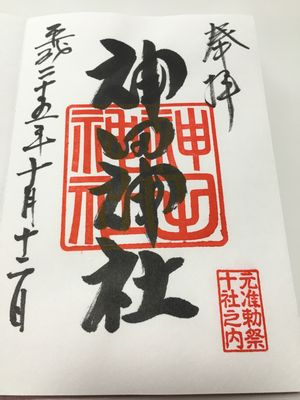 奉拝
神田神社
神田
神社
元准勅祭
十社之内
平成二十五年十月十二日